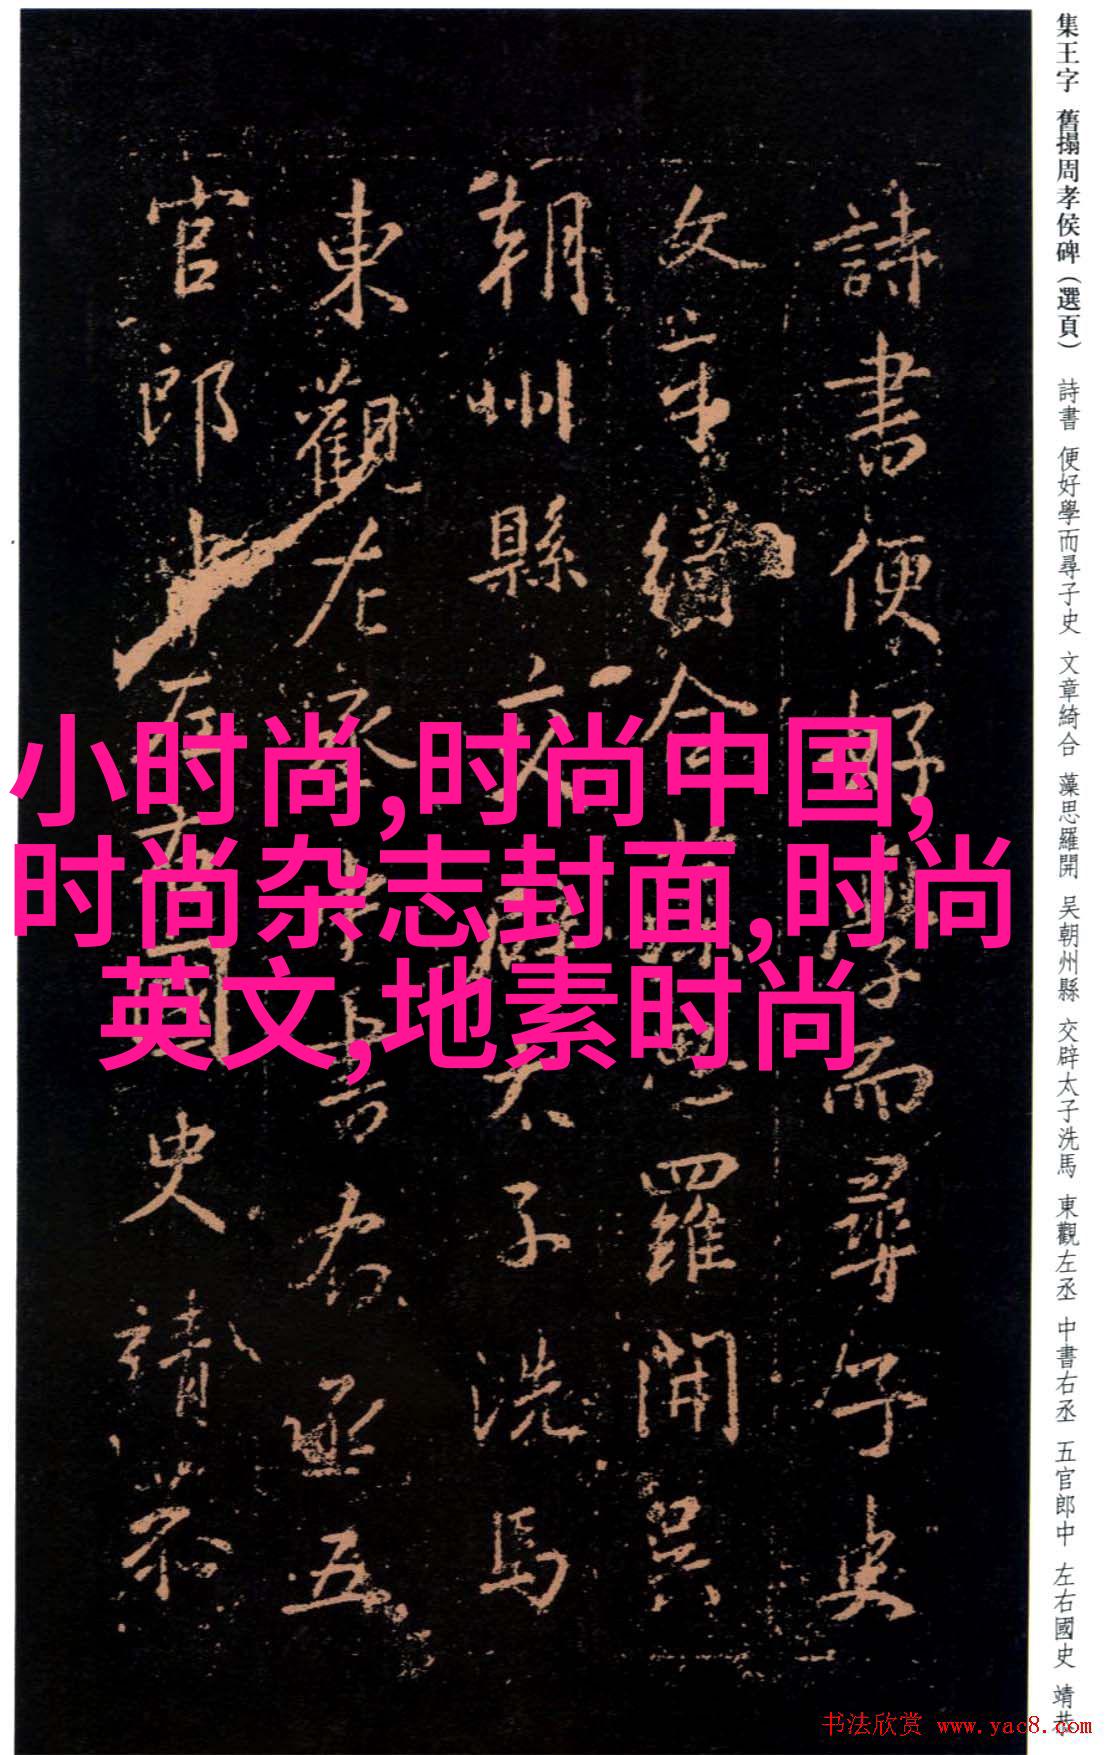 集王字 舊搨周孝侯碑（選頁） 詩書 便好學而尋子史 文章綺合 藻思羅開 吴朝州縣 交辟太子洗馬 東觀左丞 中書右丞 五官郎中 左右國史 靖恭
詩書便好學而尋子史
文章綺合藻思羅開吳
朝州縣交辟太子洗馬
東觀左丞中書右丞五
官郎中左右國史靖恭
小时尚,时尚中国,
时尚杂志封面,时尚
英文,地素时尚
书法欣赏 www.yac8.com